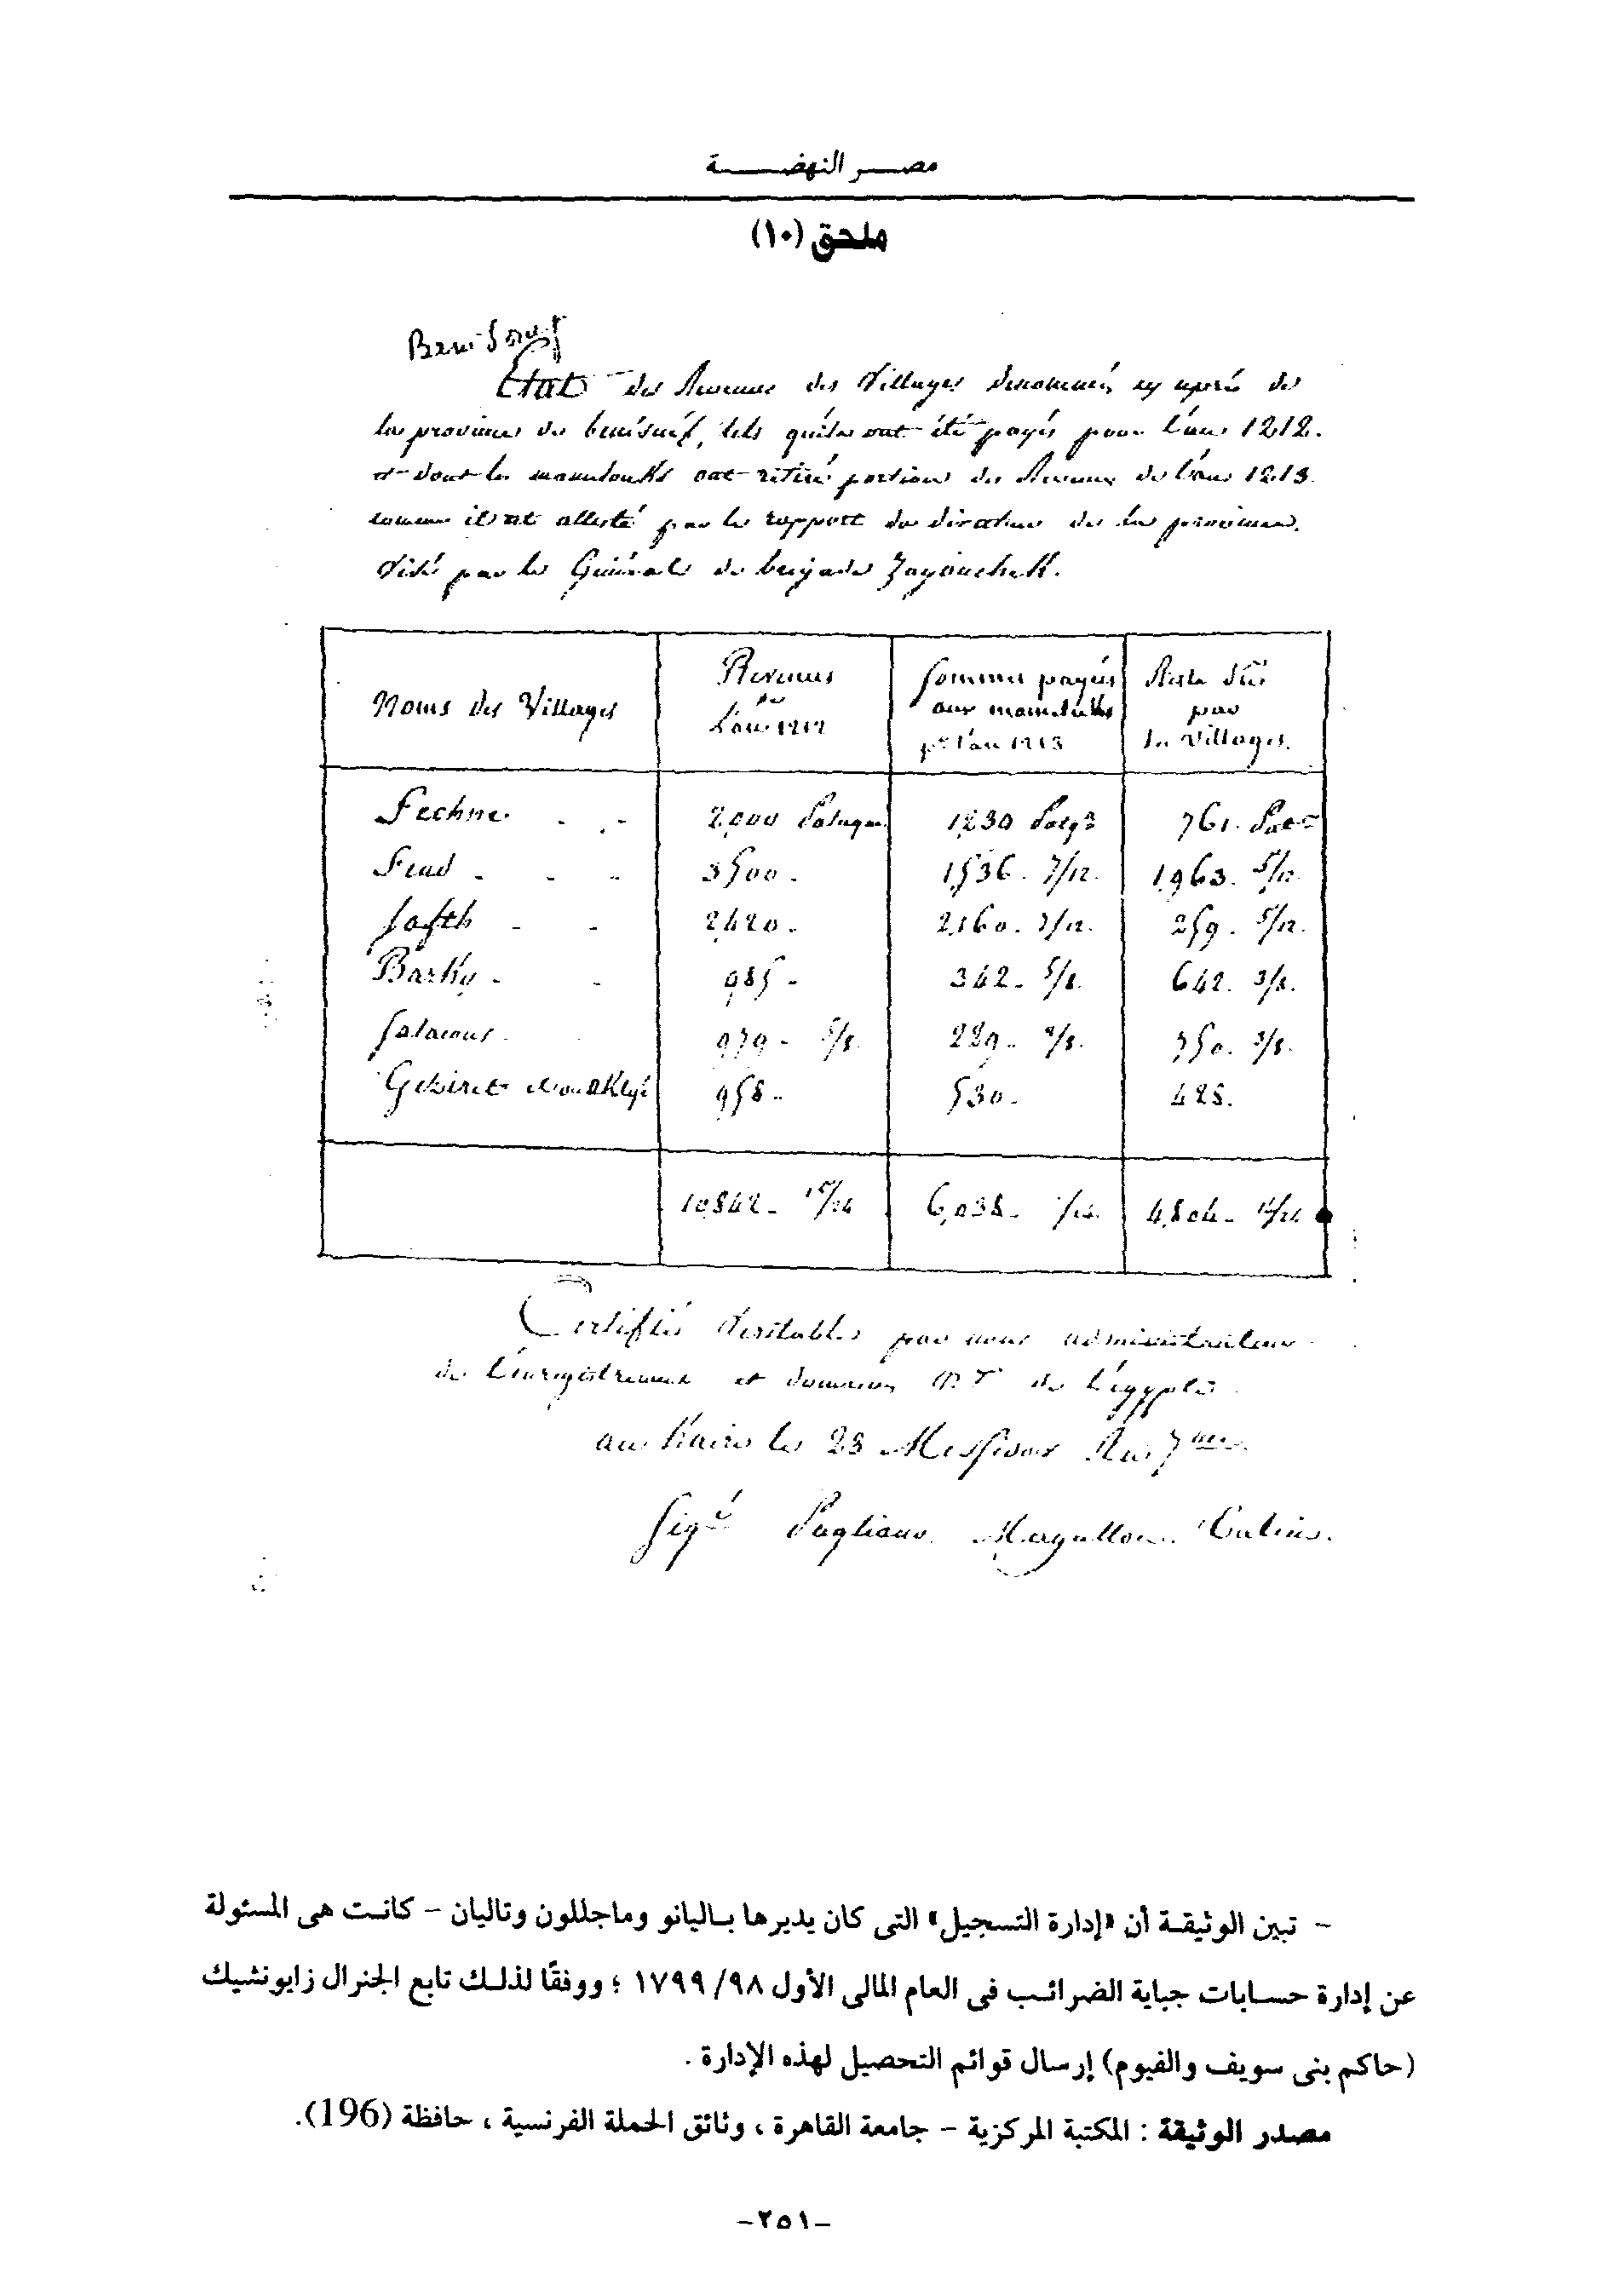 مصر النهضة
ملحق (١٠)
Beni Souef
Etat des Revenus des Villages denommés cy après de
la province de benisuef, tels qu'ils ont été payés pour l'an 1212.
et dont les mamelouks ont retiré portion des Revenus de l'an 1213
comme il est attesté par le rapport du directeur de la province.
Visé par le Général de brigade Zayonchek.
Noms des Villages | Revenus de L'an 1212 | Sommes payés aux mamelukks pr l'an 1213 | Reste dû par les Villages.
Fechne | 2,000 Pataques | 1,230 | 761.
3500. | 1,536. 7/12. | 1,963. 5/12.
Safth | 2,420. | 2,160. 7/12. | 259. 5/12.
Barky | 985 | 342. 5/8. | 642. 3/8.
979 5/8. | 229. | 750. 3/8.
Geziret | 958 | 530. | 428.
10842 | 6,038 | 4,804
Certifiés Veritables par nous administrateurs
de l'enregistrement et domaines de l'égypte
au Kaire le 23 Messidor An 7me
Signé Pagliano. Magallon.
– تبين الوثيقة أن «إدارة التسجيل» التى كان يديرها باليانو وماجللون وتاليان – كانت هى المسئولة
عن إدارة حسابات جباية الضرائب فى العام المالى الأول ٩٨/ ١٧٩٩ ؛ ووفقًا لذلك تابع الجنرال زايونشيك
(حاكم بنى سويف والفيوم) إرسال قوائم التحصيل لهذه الإدارة .
مصدر الوثيقة : المكتبة المركزية – جامعة القاهرة ، وثائق الحملة الفرنسية ، حافظة (196).
-٢٥١-